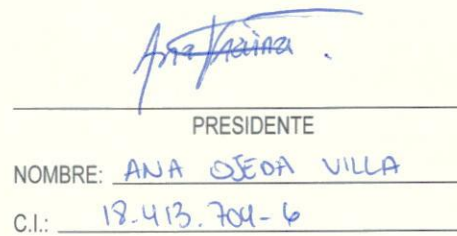 PRESIDENTE
NOMBRE: ANA OJEDA VILLA
C.I.: 18.413.704-6